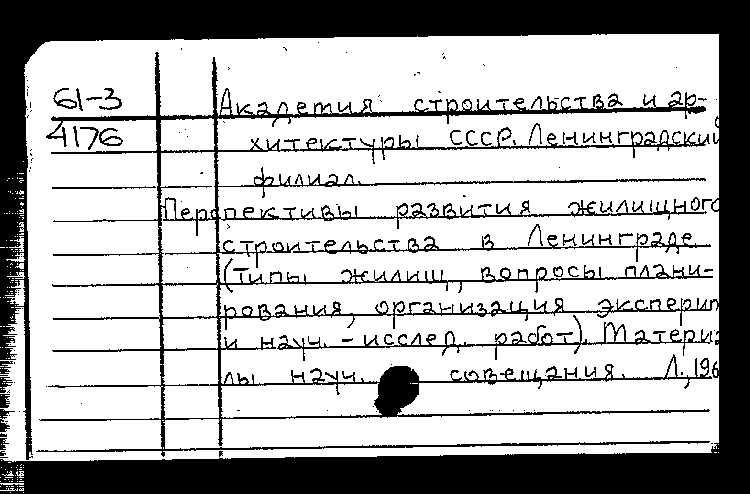 61-3
4176
Академия строительства и ар-
хитектуры СССР. Ленинградский
филиал.
Перспективы развития жилищного
строительства в Ленинграде
(типы жилищ, вопросы плани-
рования, организация эксперим
и науч.-исслед. работ). Материа
лы науч. совещания. Л., 196